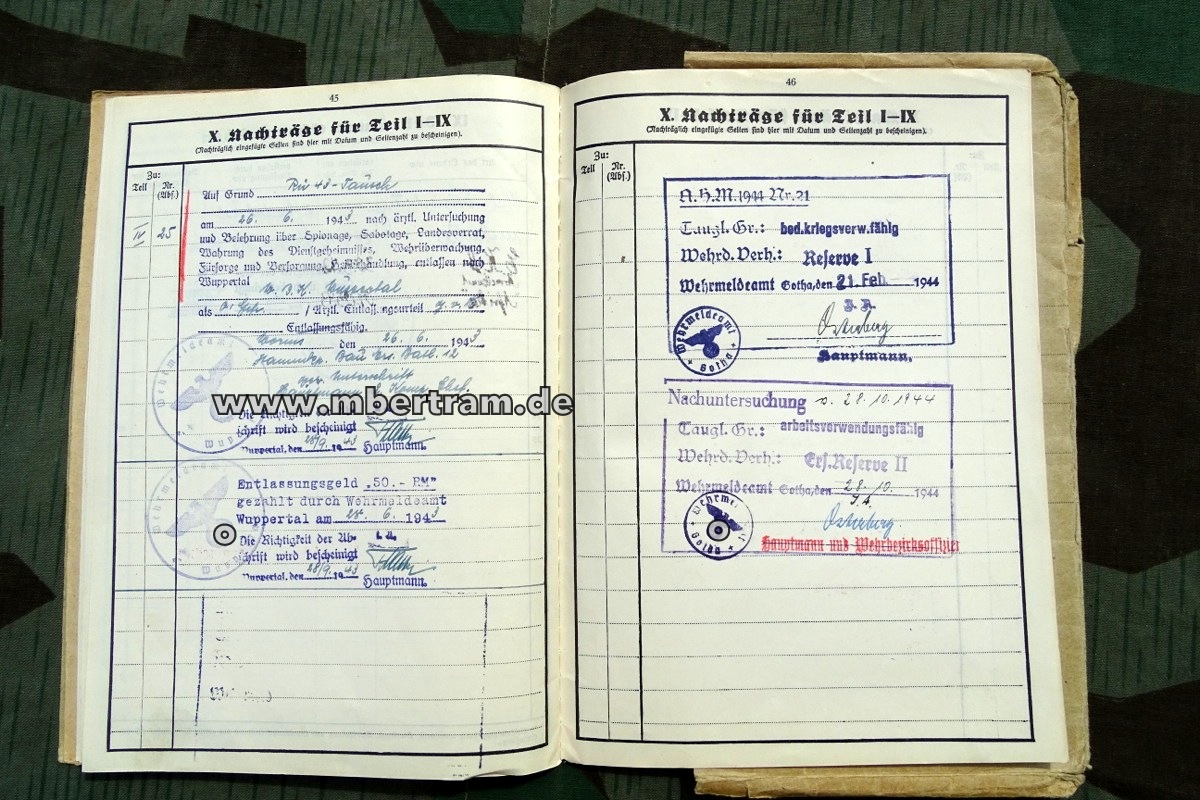 45
X. Nachträge für Teil I—IX
(Nachträglich eingefügte Seiten sind hier mit Datum und Seitenzahl zu bescheinigen).
Zu:
Teil Nr. (Abs.)
Auf Grund Rü 43-Tausch
IV 25 am 26. 6. 1943 nach ärztl. Untersuchung
und Belehrung über Spionage, Sabotage, Landesverrat,
Wahrung des Dienstgeheimnisses, Wehrüberwachung,
Fürsorge und Versorgung, entlassen nach
Wuppertal
als / Ärztl. Entlassungsurteil
Entlassungsfähig.
Worms den 26. 6. 1943
12
Die Richtigkeit der Ab-
schrift wird bescheinigt
Wuppertal, den 28/9. 1943 Hauptmann.
Wehrmeldeamt
Entlassungsgeld „50.- RM"
gezahlt durch Wehrmeldeamt
Wuppertal am 28. 6. 1943
Die Richtigkeit der Ab-
schrift wird bescheinigt
Wuppertal, den 28/9. 1943 Hauptmann.
Wehrmeldeamt
46
X. Nachträge für Teil I—IX
(Nachträglich eingefügte Seiten sind hier mit Datum und Seitenzahl zu bescheinigen).
Zu:
Teil Nr. (Abs.)
A.H.M. 1944 Nr. 21
Taugl. Gr.: bed. kriegsverw. fähig
Wehrd. Verh.: Reserve I
Wehrmeldeamt Gotha, den 21. Feb. 1944
Osterberg
Hauptmann.
Wehrmeldeamt Gotha
Nachuntersuchung v. 28.10.1944
Taugl. Gr.: arbeitsverwendungsfähig
Wehrd. Verh.: Ers. Reserve II
Wehrmeldeamt Gotha, den 28. 10. 1944
Osterberg
Hauptmann und Wehrbezirksoffizier
Gotha
www.mbertram.de